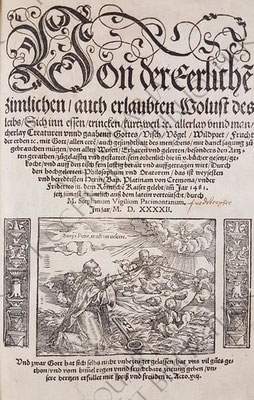 Von der Eerlichẽ
zimlichen / auch erlaubten Wolust des
leibs / Sich inn essen / trincken / kurtzweil ꝛc. allerlay vnnd man
cherlay Creaturen vnnd gaaben Gottes / Visch / Vögel / Wildpret / Frücht
der erden ꝛc. mit Gott / allen eere / auch gesundthait des menschens / mit danckſagung zů
gebrauchen mügen / von allen Weisen / Erfarnen vnd geleerten / besonders den Artz-
ten gerathen / zůgelassen vnd gestattet / sein ordenlich hie in
bůcher gesetzt / ge-
kocht / vnd auff den tisch fein lustig berait vnd auffgetragen wirt / Durch
den hochgelerten Philosophum vnd Oratorem / das ist weysesten
vnd beredtisten Herrn / Bap. Platinam von Cremona / vnder
Friderico iij. dem Römische Kaiser gelebt / im Jar 1481.
jetz auß dem latein verteütscht / durch
M. Stephanum Vigilium Pacimontanum,
Im jar M. D. XXXXII.
Surge Petre, macta et manduca.
Vnd zwar Gott hat sich selbs nicht vnbezeuget gelassen / hat vns vil gůtes ge-
thon / vnd vom himel regen vnnd fruchtbare zeytung geben / vn-
sere hertzen erfüllet mit speiß vnd freuden ꝛc. Acto. xiiij.